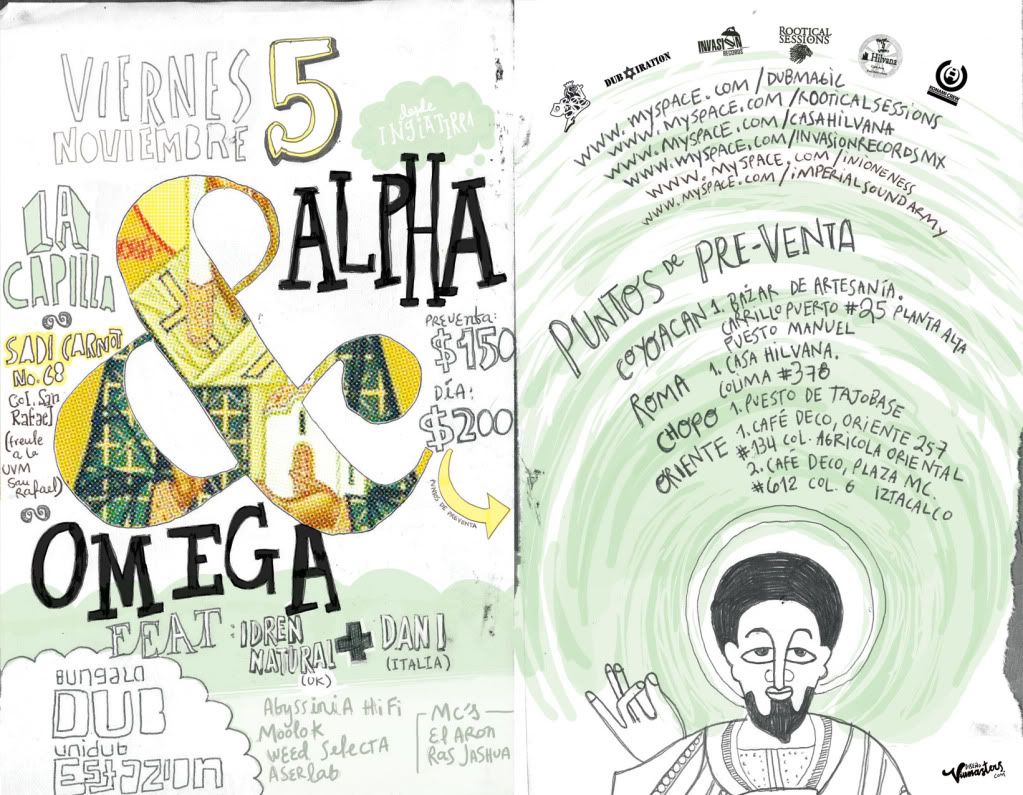 VIERNES 5
NOVIEMBRE
desde
INGLATERRA
ALPHA
&
OMEGA
LA
CAPILLA
SADI CARNOT
No. 68
Col. San
Rafael
(frente
a la
UVM
San
Rafael)
PREVENTA:
$150
DÍA:
$200
PUNTOS DE PREVENTA
FEAT: IDREN
NATURAL
(UK)
+
DANI
(ITALIA)
BUNGALO
DUB
unidub
ESTAZION
Abyssinia HiFi
Moolok
Weed Selecta
Aserlab
MC's
El Aron
Ras Jashua
DUB IRATION
INVASION
RECORDS
ROOTICAL
SESSIONS
Hilvana
www.myspace.com/dubmagic
www.myspace.com/rooticalsessions
www.myspace.com/casahilvana
www.myspace.com/invasionrecordsmx
www.myspace.com/inioneness
www.myspace.com/imperialsoundarmy
PUNTOS DE PRE-VENTA
COYOACAN 1. BAZAR DE ARTESANÍA.
CARRILLO PUERTO #25 PLANTA ALTA
PUESTO MANUEL
ROMA 1. CASA HILVANA.
COLIMA #378
CHOPO 1. PUESTO DE TAJOBASE
ORIENTE 1. CAFÉ DECO, ORIENTE 257
#134 COL. AGRÍCOLA ORIENTAL
2. CAFÉ DECO, PLAZA MC.
#612 COL. 6 IZTACALCO